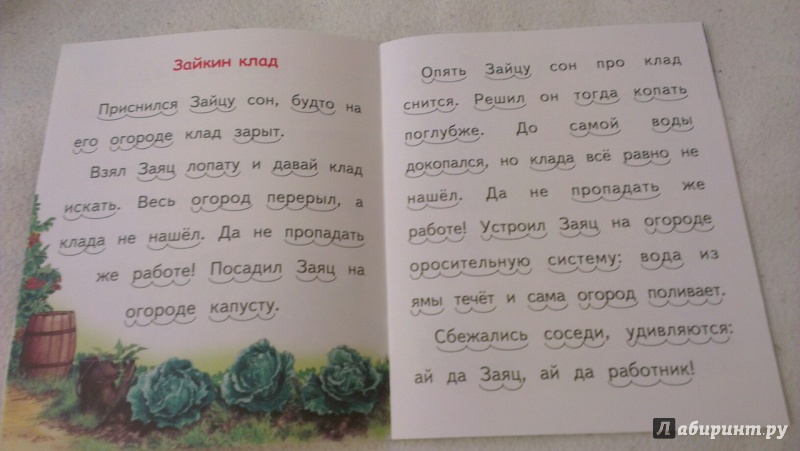 Зайкин клад
Приснился Зайцу сон, будто на
его огороде клад зарыт.
Взял Заяц лопату и давай клад
искать. Весь огород перерыл, а
клада не нашёл. Да не пропадать
же работе! Посадил Заяц на
огороде капусту.
Опять Зайцу сон про клад
снится. Решил он тогда копать
поглубже. До самой воды
докопался, но клада всё равно не
нашёл. Да не пропадать же
работе! Устроил Заяц на огороде
оросительную систему: вода из
ямы течёт и сама огород поливает.
Сбежались соседи, удивляются:
ай да Заяц, ай да работник!
Лабиринт.ру